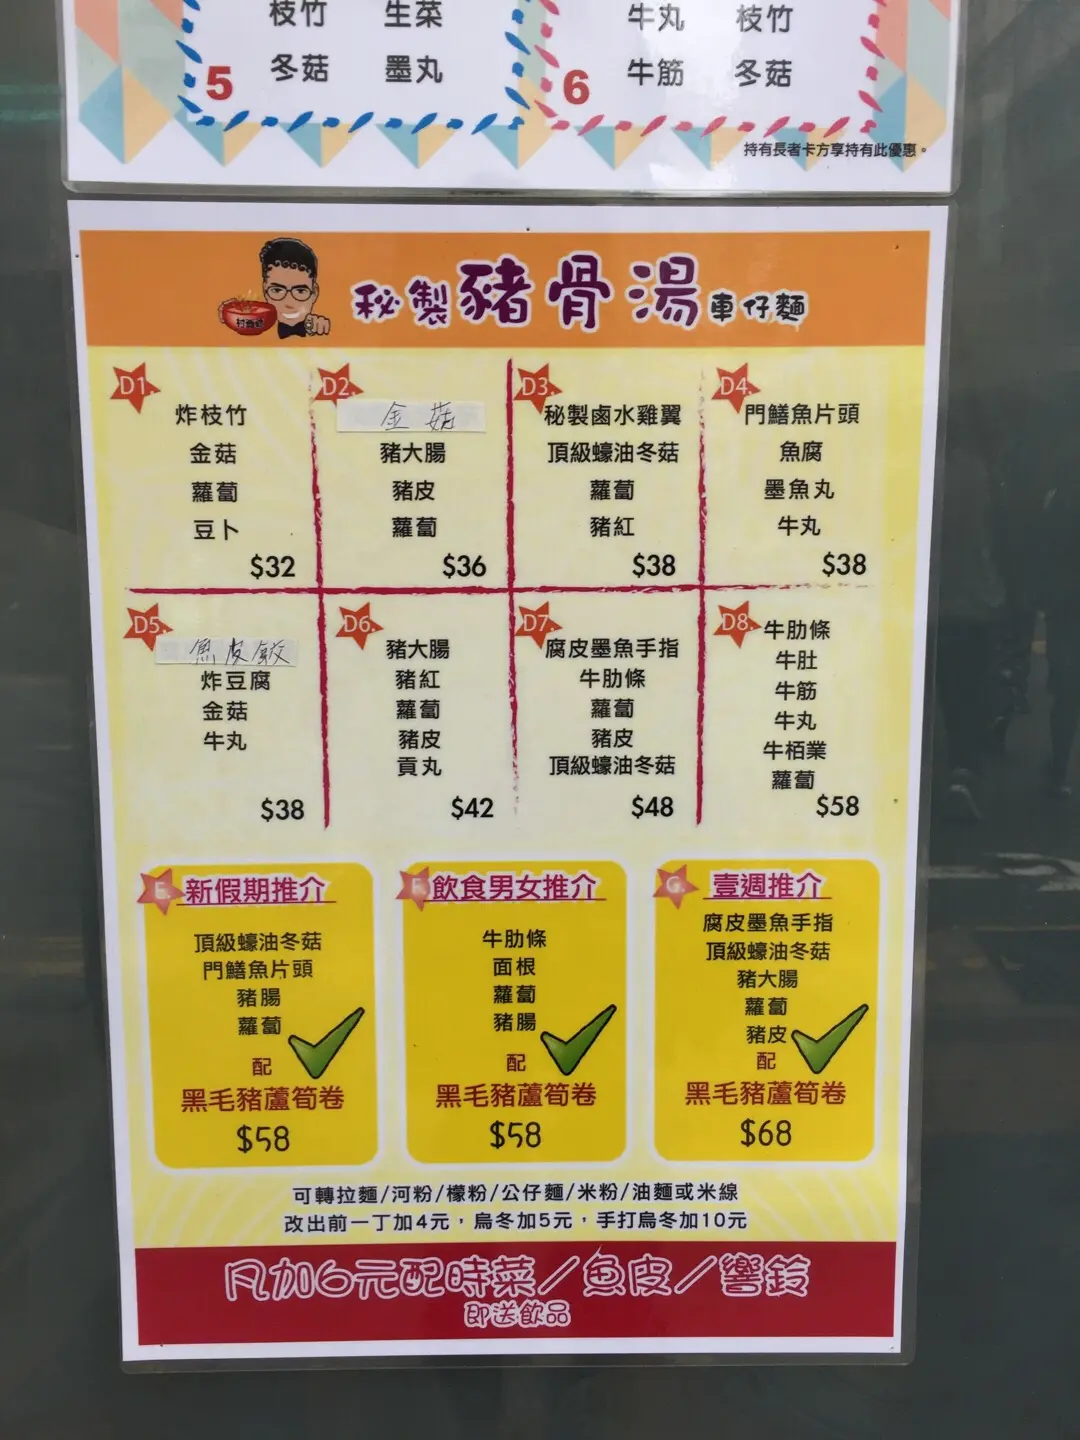 枝竹 生菜
冬菇 墨丸
5
牛丸 枝竹
牛筋 冬菇
6
持有長者卡方享持有此優惠。
秘製豬骨湯車仔麵
D1.
炸枝竹
金菇
蘿蔔
豆卜
$32
D2.
金菇
豬大腸
豬皮
蘿蔔
$36
D3.
秘製鹵水雞翼
頂級蠔油冬菇
蘿蔔
豬紅
$38
D4.
門鱔魚片頭
魚腐
墨魚丸
牛丸
$38
D5.
魚皮餃
炸豆腐
金菇
牛丸
$38
D6.
豬大腸
豬紅
蘿蔔
豬皮
貢丸
$42
D7.
腐皮墨魚手指
牛肋條
蘿蔔
豬皮
頂級蠔油冬菇
$48
D8.
牛肋條
牛肚
牛筋
牛丸
牛栢業
蘿蔔
$58
E. 新假期推介
頂級蠔油冬菇
門鱔魚片頭
豬腸
蘿蔔
配
黑毛豬蘆筍卷
$58
F. 飲食男女推介
牛肋條
面根
蘿蔔
豬腸
配
黑毛豬蘆筍卷
$58
G. 壹週推介
腐皮墨魚手指
頂級蠔油冬菇
豬大腸
蘿蔔
豬皮
配
黑毛豬蘆筍卷
$68
可轉拉麵/河粉/檬粉/公仔麵/米粉/油麵或米線
改出前一丁加4元，烏冬加5元，手打烏冬加10元
凡加6元配時菜／魚皮／響鈴
即送飲品